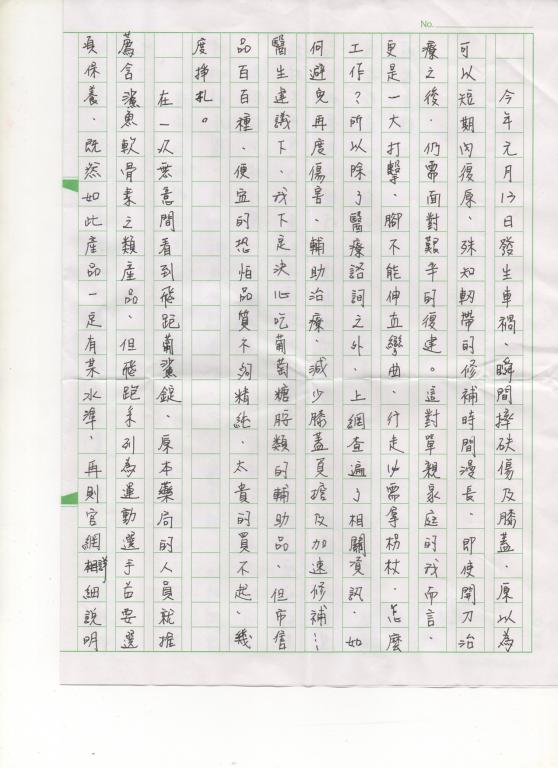 No.
今年元月13日發生車禍、瞬間摔砍傷及膝蓋、原以為
可以短期內復原、殊知韌帶的修補時間漫長、即使開刀治
療之後、仍需面對艱辛的復建。這對單親家庭的我而言、
更是一大打擊、腳不能伸直彎曲、行走必需拿柺杖、怎麼
工作？所以除了醫療諮詞之外、上網查遍了相關資訊、如
何避免再度傷害、輔助治療、減少膝蓋負擔及加速修補…
醫生建議下、我下定決心吃葡萄糖胺類的輔助品、但市售
品百百種、便宜的恐怕品質不夠精純、太貴的買不起、幾
度掙扎。
在一次無意間看到飛跑葡鯊錠、原本藥局的人員就推
薦含鯊魚軟骨素之類產品、但飛跑系列為運動選手首要選
項保養、既然如此產品一定有某水準、再則官網相詳細說明